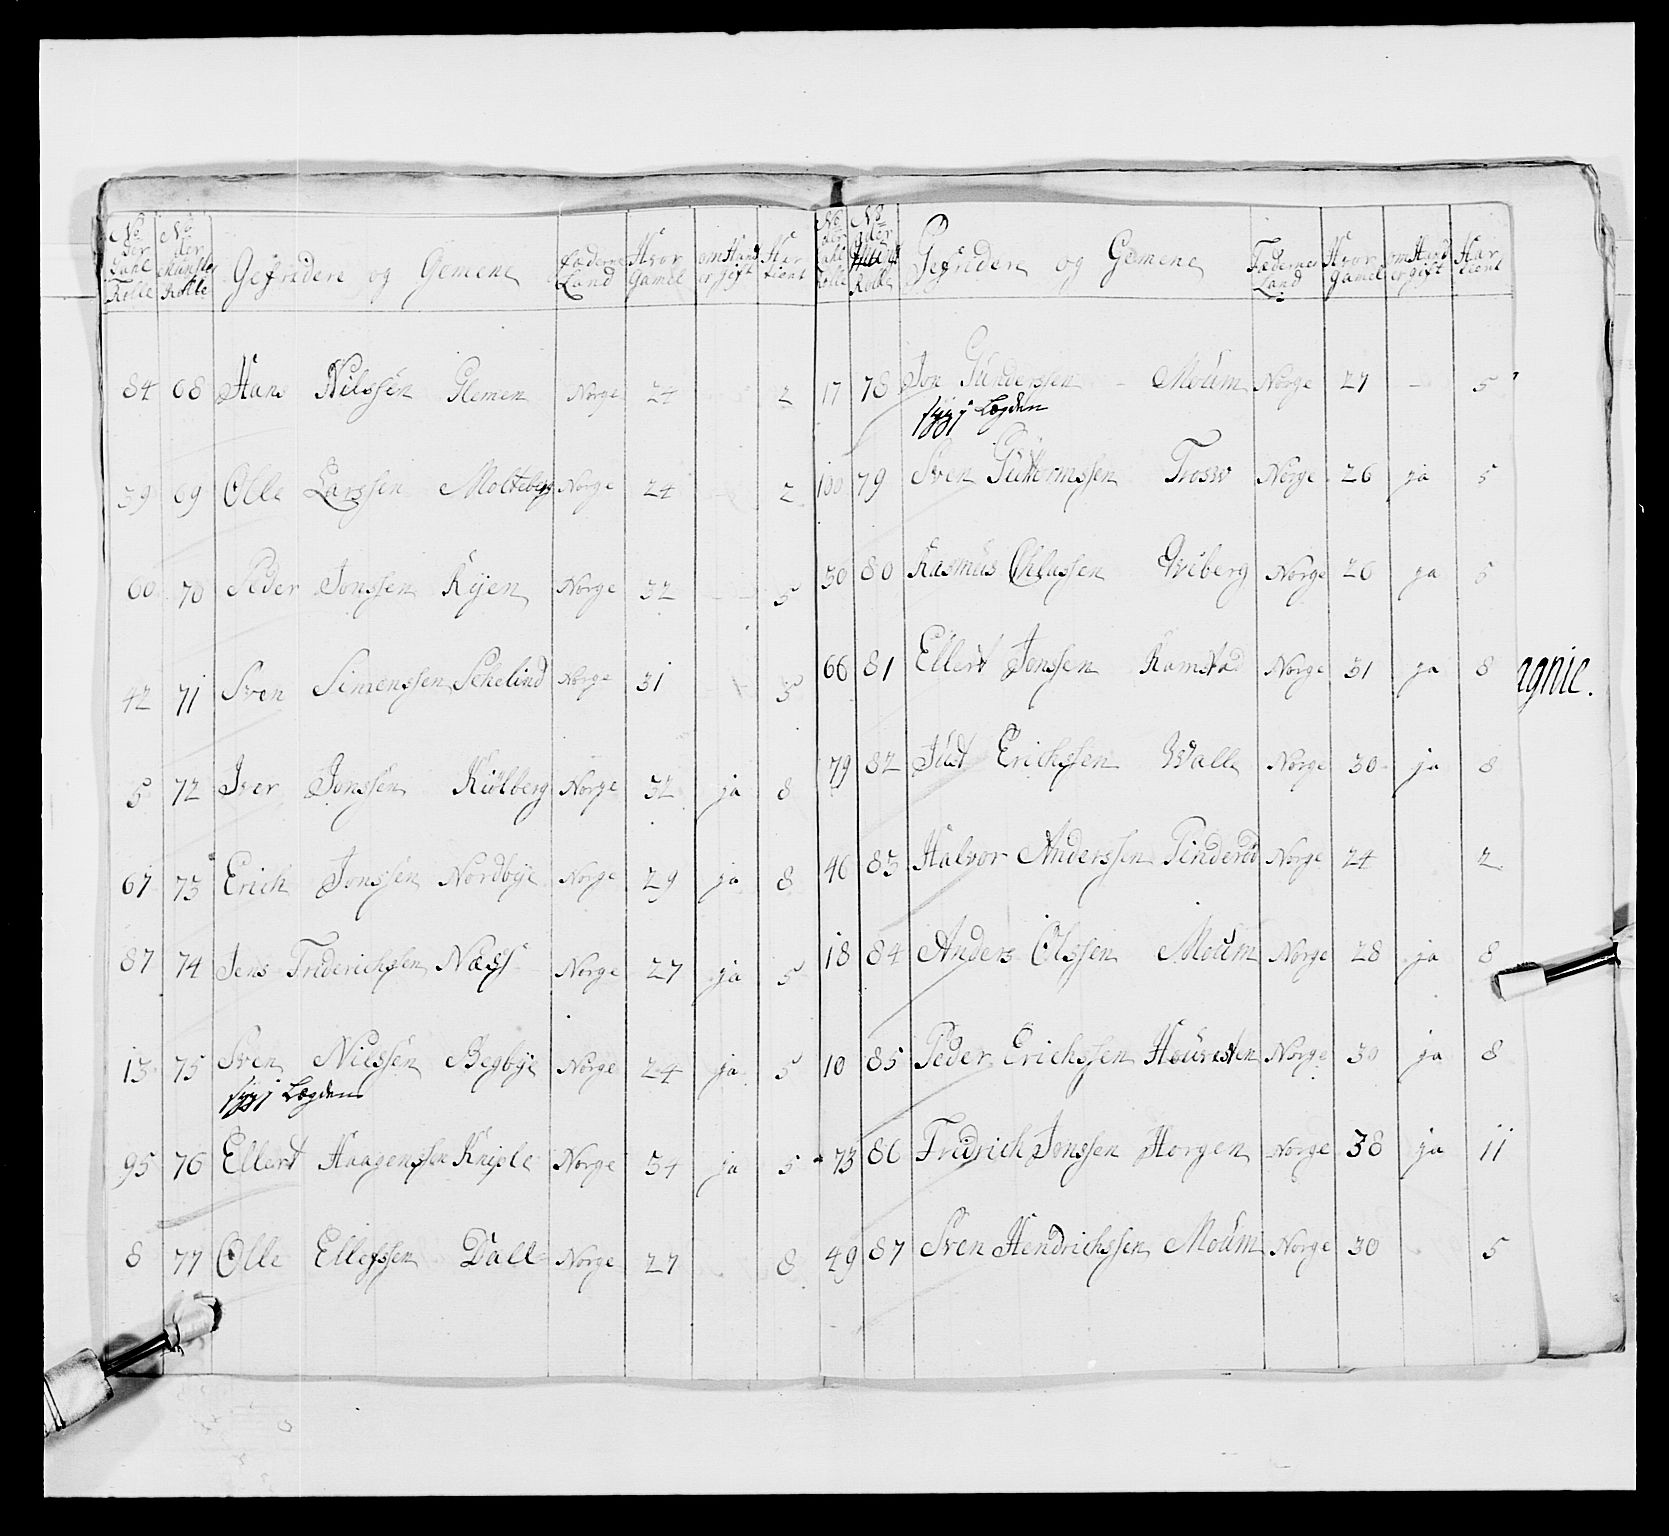 No der Tahl Rolle | No der Münster Rolle | Gefridere og Gemene | Fæderne Land | Hvor Gamel | om Hand er gift | Har tient
84 68 Hans Nilssen Glemen Norge 24 2
39 69 Olle Larssen Molteberg Norge 24 2
60 70 Peder Jonssen Kijen Norge 32 5
42 71 Sven Simenssen Schelind Norge 31 5
5 72 Iver Jonssen Kiölberg Norge 32 ja 8
67 73 Erich Jonssen Nordbye Norge 29 ja 8
87 74 Jens Friderichsen Næss Norge 27 ja 5
13 75 Sven Nilssen Begbye Norge 24 ja 5
syg i Lægden
95 76 Ellert Haagenssen Kniple Norge 34 ja 5
8 77 Olle Ellefssen Dall Norge 27 8
No der Tahl Rolle | No der Rolle | Gefridere og Gemene | Fæderne Land | Hvor Gamel | om Hand er gift | Har tient
17 78 Jon Gunderssen - Moüm Norge 27 - 5
syg i Lægden
100 79 Sven Guttormssen Trosvv Norge 26 ja 5
50 80 Rasmus Chlassen Wiberg Norge 26 ja 5
66 81 Ellert Jonssen Ramstad Norge 31 ja 8
79 82 Just Erichssen Walle Norge 30 ja 8
46 83 Halvor Anderssen Pinderöd Norge 24 2
18 84 Anders Olssen Moüm Norge 28 ja 8
10 85 Peder Erichssen Houresten Norge 30 ja 8
73 86 Fridrich Jonssen Horgen Norge 38 ja 11
49 87 Sven Hendrichssen Moüm Norge 30 5
agnie.